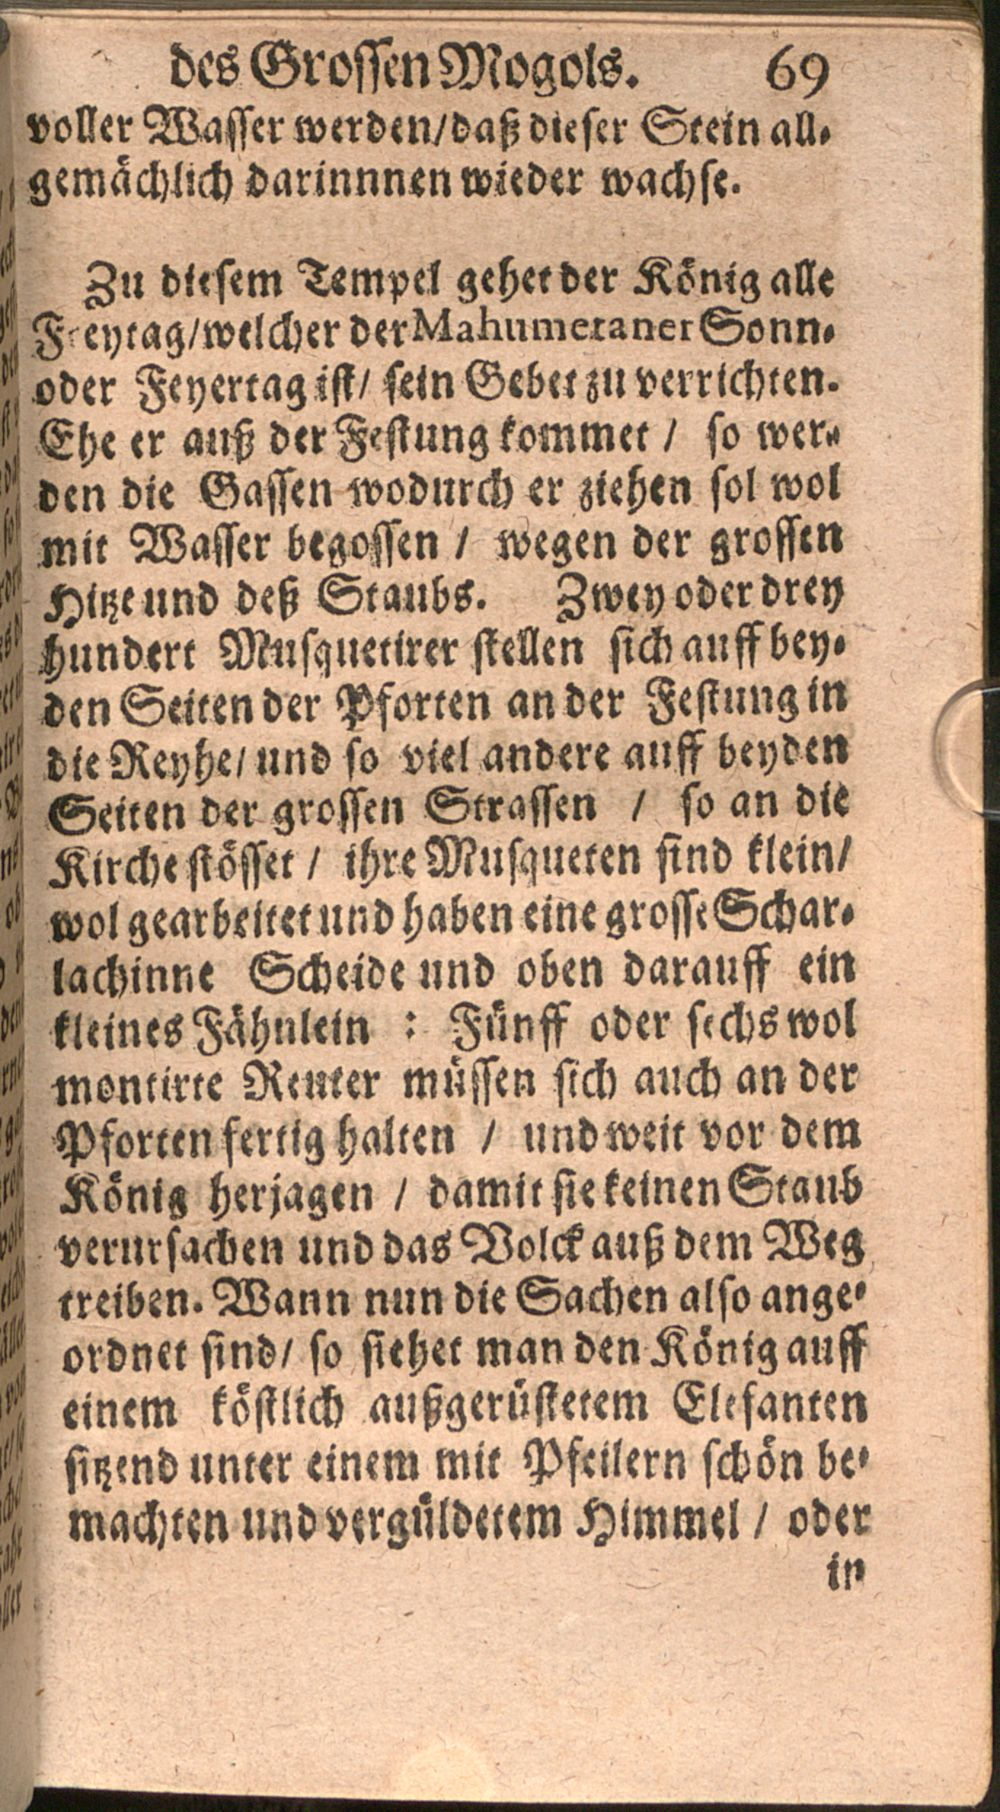 des Grossen Mogols. 69
voller Wasser werden/daß dieser Stein all-
gemächlich darinnnen wieder wachse.
Zu diesem Tempel gehet der König alle
Freytag/welcher der Mahumetaner Sonn-
oder Feyertag ist/ sein Gebet zu verrichten.
Ehe er auß der Festung kommet / so wer-
den die Gassen wodurch er ziehen sol wol
mit Wasser begossen / wegen der grossen
Hitze und deß Staubs. Zwey oder drey
hundert Musquetirer stellen sich auff bey-
den Seiten der Pforten an der Festung in
die Reyhe/ und so viel andere auff beyden
Seiten der grossen Strassen / so an die
Kirche stösset / ihre Musqueten sind klein/
wol gearbeitet und haben eine grosse Schar-
lachinne Scheide und oben darauff ein
kleines Fähnlein : Fünff oder sechs wol
montirte Reuter müssen sich auch an der
Pforten fertig halten / und weit vor dem
König herjagen / damit sie keinen Staub
verursachen und das Volck auß dem Weg
treiben. Wann nun die Sachen also ange-
ordnet sind/ so siehet man den König auff
einem köstlich außgerüstetem Elefanten
sitzend unter einem mit Pfeilern schön be-
machten und vergüldetem Himmel / oder
in